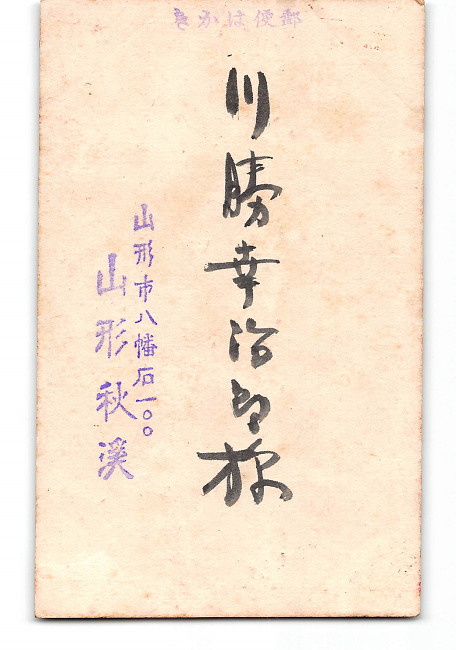 郵便はかき
川勝幸治郎様
山形市八幡石一〇〇
山形秋渓